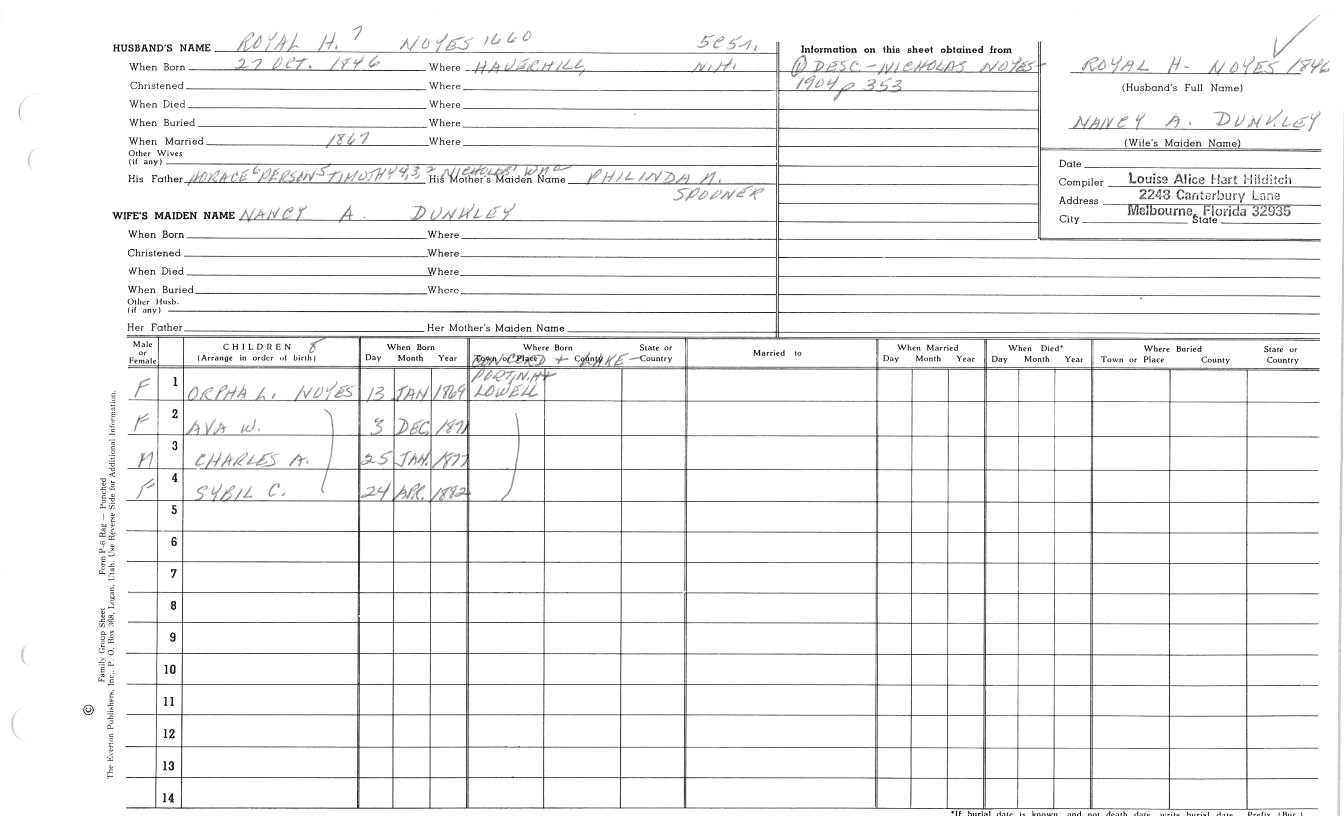 HUSBAND'S NAME ROYAL H. 7 NOYES 1660 5C51.
When Born 27 OCT. 1846 Where HAVERHILL, N.H.
Christened Where
When Died Where
When Buried Where
When Married 1867 Where
Other Wives
(if any)
His Father HORACE 6 PERSON 5 TIMOTHY 4,3, 2 NICHOLAS' WM a His Mother's Maiden Name PHILINDA N.
SPOONER
WIFE'S MAIDEN NAME NANCY A. DUNKLEY
When Born Where
Christened Where
When Died Where
When Buried Where
Other Husb.
(if any)
Her Father Her Mother's Maiden Name
Information on this sheet obtained from
① DESC. - NICHOLAS NOYES -
1904 p 353
ROYAL H- NOYES 1846
(Husband's Full Name)
NANCY A. DUNKLEY
(Wife's Maiden Name)
Date
Compiler Louise Alice Hart Hilditch
Address 2243 Canterbury Lane
Melbourne, Florida 32935
City State
Male or Female
CHILDREN 8
(Arrange in order of birth)
When Born
Day Month Year
Where Born
Town or Place County State or Country
Married to
When Married
Day Month Year
When Died*
Day Month Year
Where Buried
Town or Place County State or Country
CONCORD + WAKE-
PORT, N.H +
F 1 ORPHA L. NOYES 13 JAN 1869 LOWELL
F 2 AVA W. 3 DEC 1871
M 3 CHARLES A. 25 JAN. 1877
F 4 SYBIL C. 24 APR. 1882
5
6
7
8
9
10
11
12
13
14
*If burial date is known, and not death date, write burial date. Prefix (Bur.)
© Family Group Sheet Form P-6 Rag — Punched
The Everton Publishers, Inc., P. O. Box 368, Logan, Utah. Use Reverse Side for Additional Information.